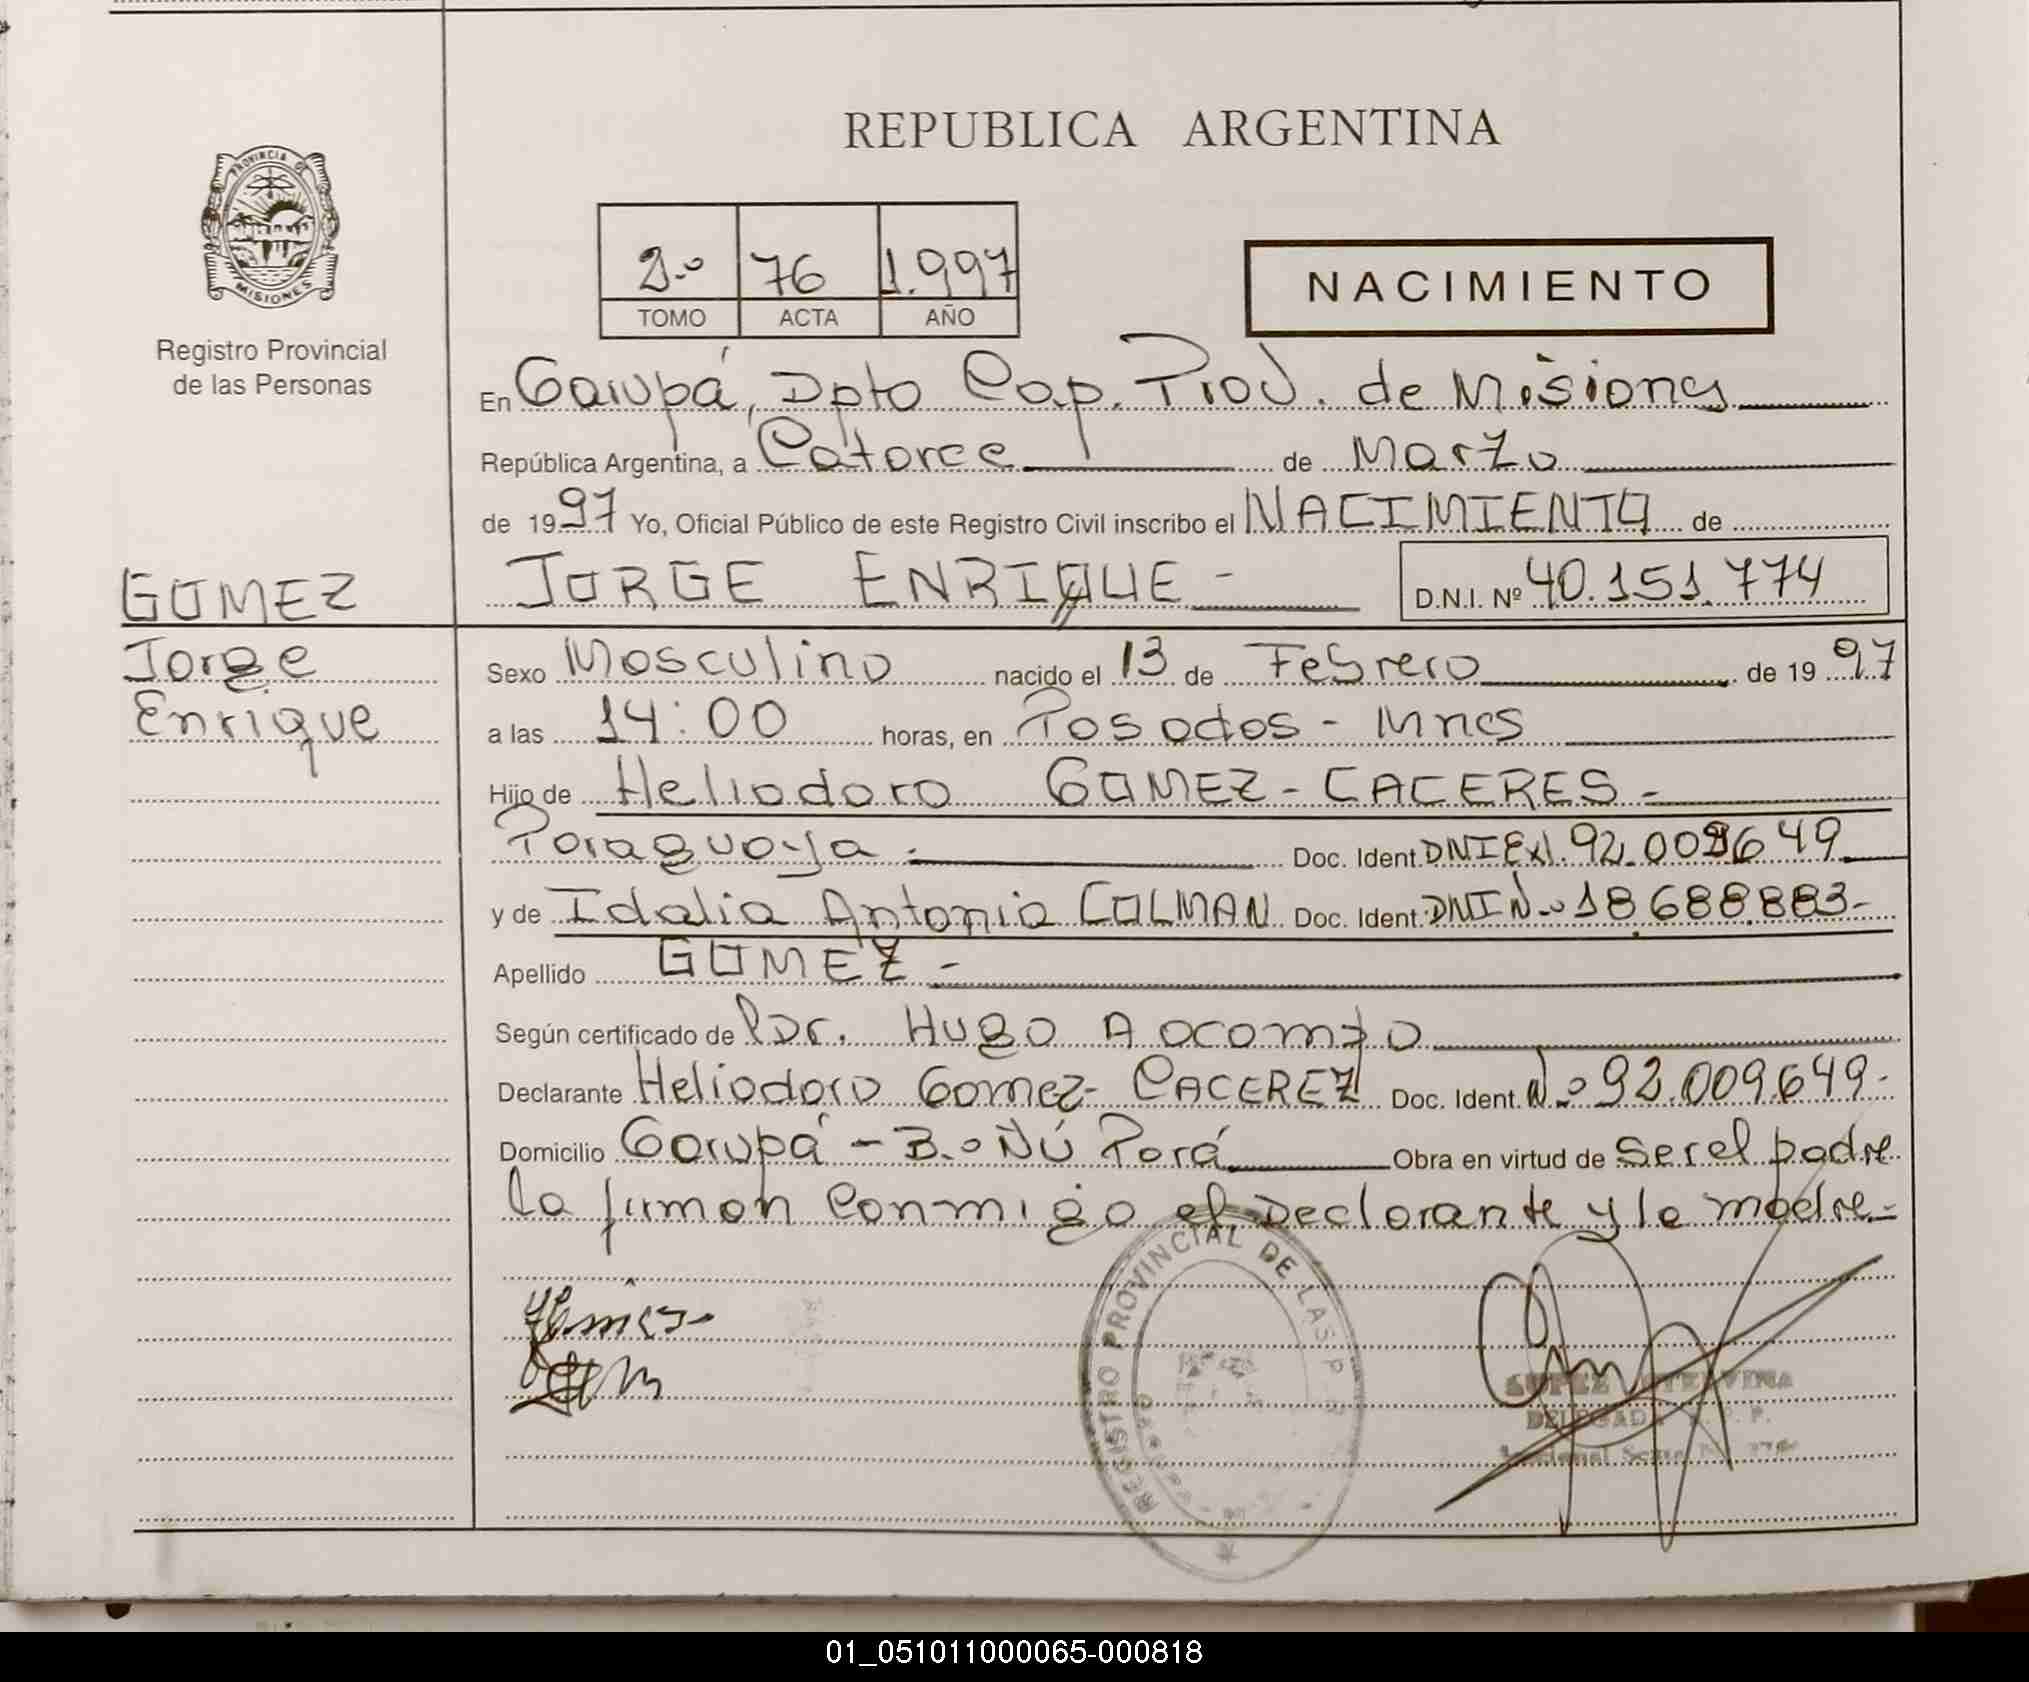 REPUBLICA ARGENTINA
PROVINCIA DE
MISIONES
Registro Provincial
de las Personas
2.º 76 1.997
TOMO ACTA AÑO
NACIMIENTO
En Garupá, Dpto Cap. Prov. de Misiones
República Argentina, a Catorce de Marzo
de 1997 Yo, Oficial Público de este Registro Civil inscribo el NACIMIENTO de
GOMEZ JORGE ENRIQUE - D.N.I. Nº 40.151.774
Jorge
Enrique
Sexo Masculino nacido el 13 de Febrero de 1997
a las 14:00 horas, en Posadas - Mnes
Hijo de Heliodoro GOMEZ - CACERES -
Paraguaya. Doc. Ident. DNI Ext. 92.009649
y de Idalia Antonia COLMAN Doc. Ident. DNI N.º 18.688.883-
Apellido GOMEZ -
Según certificado de Dr. Hugo
Declarante Heliodoro Gomez- CACEREZ Doc. Ident. N.º 92.009.649-
Domicilio Garupá - B.º Ñú Porá Obra en virtud de ser el padre
la firman conmigo el Declarante y la madre-
REGISTRO PROVINCIAL DE LAS
DELEGADA R. P. P.
01_051011000065-000818